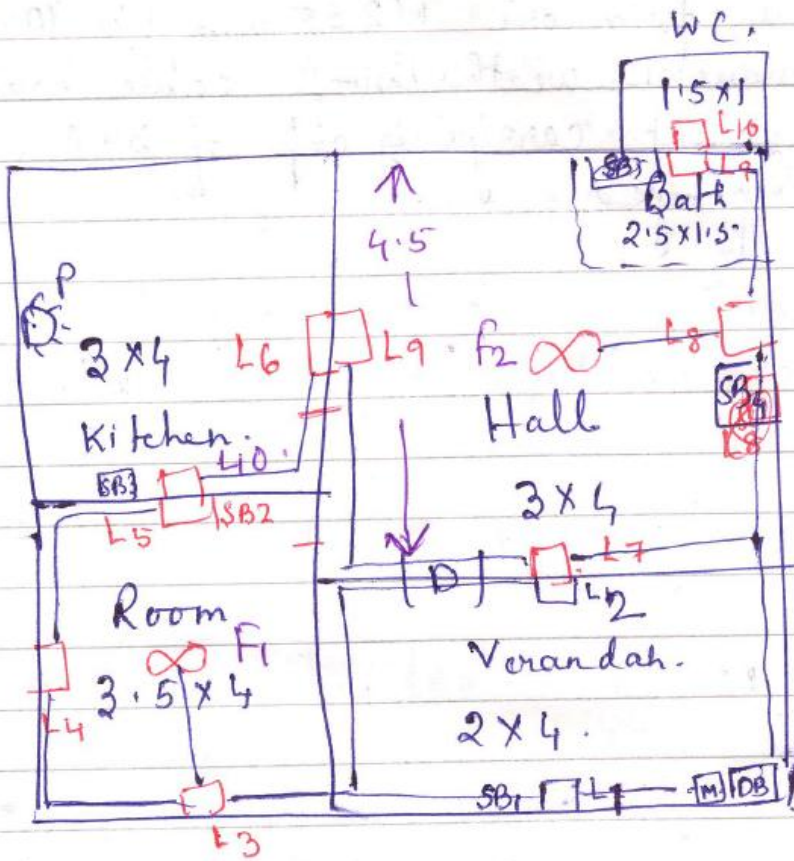 WC.
1.5 x 1
L10
SB5
L9
Bath
2.5 x 1.5
4.5
P
3 x 4
L6
L9
F2
L8
Kitchen.
Hall
SB4
L8
SB3
40
3 x 4
L5
SB2
L7
D
L2
Room
F1
Verandah.
3.5 x 4
L4
2 x 4.
SB1
L1
M
DB
L3